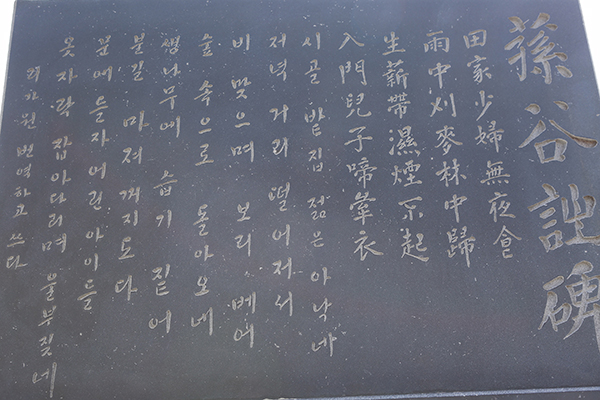 蓀谷詩碑
田家少婦無夜食
雨中刈麥林中歸
生薪帶濕煙不起
入門兒子啼牽衣
시골 밭집 젊은 아낙네
저녁 거리 떨어져서
비 맞으며 보리 베어
숲 속으로 돌아오네
생나무에 습기 짙어
불길 마져 꺼지도다
문에들자 어린 아이들
옷자락 잡아다리며 울부짖네
리가원 번역하고 쓰다